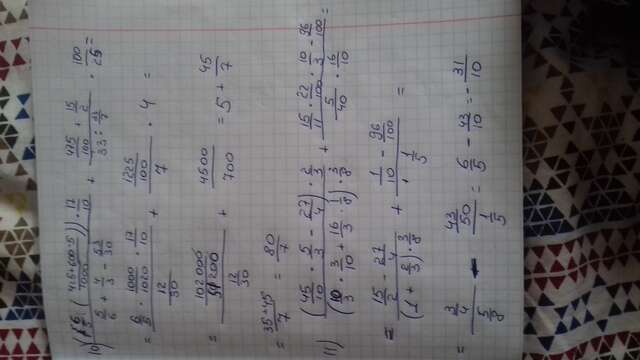 10) (6/5 : (4·5+600·5)/1000)) · 17/10 / 5/6 + 4/3 - 53/30 + 475/100 + 15/2 / 33 : 33/7 · 100/25 =
= 6/5 · 1000/1020 · 17/10 / 12/30 + 1225/100 / 7 · 4 =
= 102000/51200 / 12/30 + 4500/700 = 5 + 45/7
= 35+45/7 = 80/7
11) (45/10 · 5/3 - 27/4) · 2/3 / (10/3 · 3/10 + 16/3 · 1/8) · 3/8 + 15/11 · 22/100 · 10/3 - 96/100 / 5/40 · 16/10 =
= 15/2 - 27/4 / (1 + 2/3) · 3/8 + 1/10 - 96/100 / 1/5 =
= 3/4 / 5/8 - 43/50 / 1/5 = 6/5 - 43/10 = - 31/10